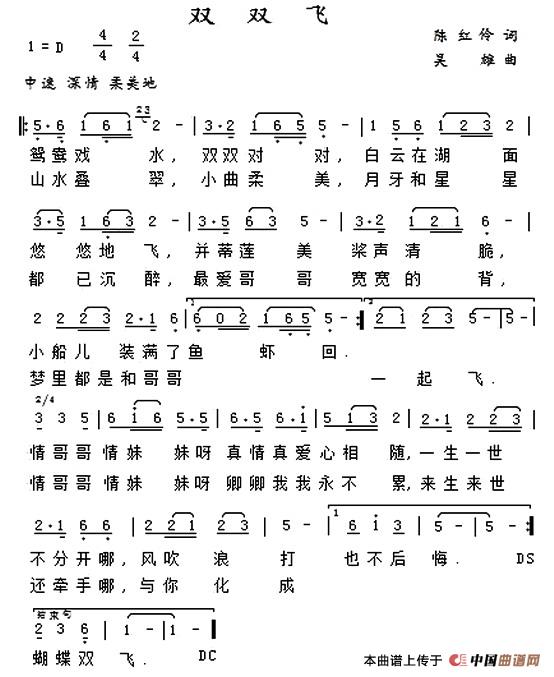 双 双 飞
1=D 4/4 2/4
陈红伶 词
吴 雄 曲
中速 深情 柔美地
5·6 1 6 1 23 2 - 3·2 1 6 5 5 - 1 5 6 1 2 3 2
鸳鸯戏 水, 双双对 对, 白云在湖 面
山水叠 翠, 小曲柔 美, 月牙和星 星
3·5 1 6 3 2 - 3·5 6 3 5 - 3·2 1 2 1 6 -
悠 悠地 飞, 并蒂莲 美 桨声清 脆,
都 已沉 醉, 最爱哥 哥 宽宽的 背,
2 2 2 2 3 2·1 6 1 6 0 2 1 6 5 5 - 2 2 1 2 3 5 - 5 -
小船儿 装满了鱼 虾 回.
梦里都是和哥哥 一 起 飞.
2/4
3 3 5 6 1 6 5·5 6·5 6·1 5 1 3 2 1 2 3
情哥哥情妹 妹呀真情真爱心相 随,一生一世
情哥哥情妹 妹呀卿卿我我永不 累,来生来世
2·1 6 6 2 2 1 2 3 5 - 1 6 1 3 5 - 5 -
不分开哪,风吹 浪 打 也不后 悔. DS
还牵手哪,与你 化 成
结束句
2 3 6 1 - 1 -
蝴蝶双 飞. DC
本曲谱上传于 中国曲谱网